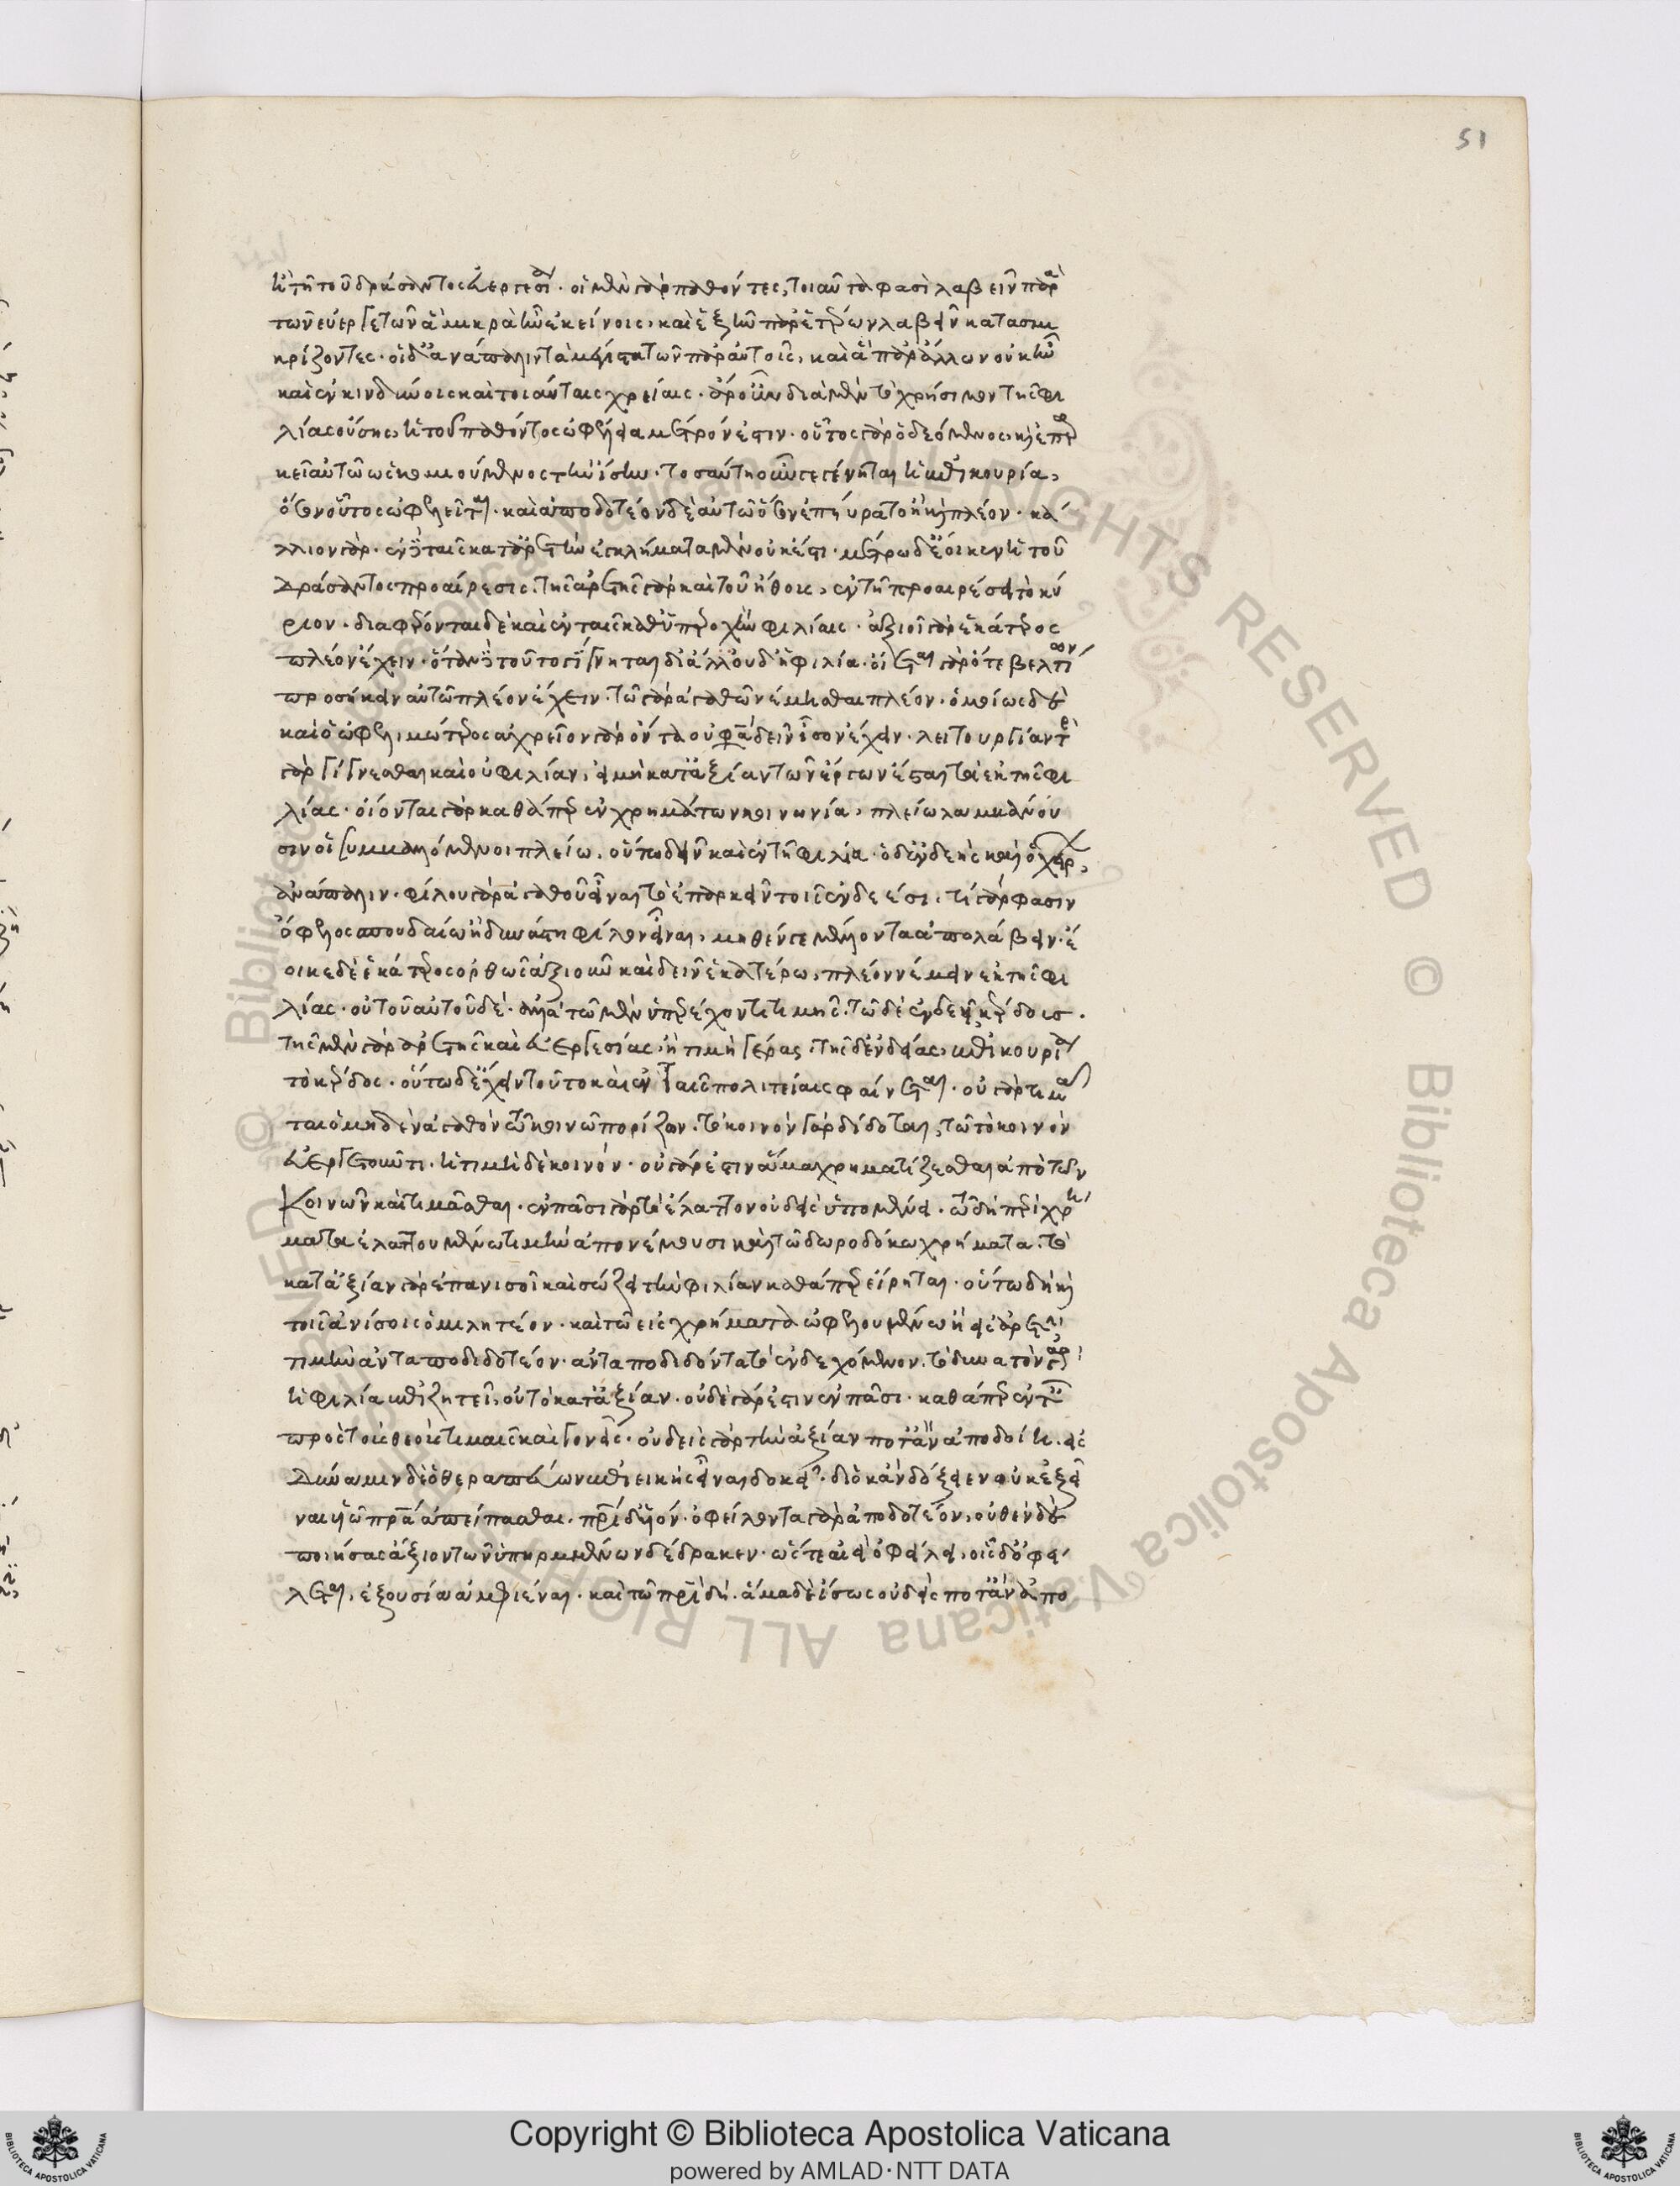 51
ἢ τῇ τοῦ δράσαντος εὐεργεσίᾳ. οἱ μὲν γὰρ παθόντες, τοιαῦτα φασὶ λαβεῖν παρὰ
τῶν εὐεργετῶν ἃ μικρὰ ἦν ἐκείνοις, καὶ ἐξῆν παρ' ἑτέρων λαβεῖν κατασμι
κρίζοντες. οἱ δ' ἀνάπαλιν τὰ μέγιστα τῶν παρ' αὐτοῖς, καὶ ἃ παρ' ἄλλων οὐκ ἦν
καὶ ἐν κινδύνοις καὶ τοιαύταις χρείαις. ἆρ' οὖν διὰ μὲν τὸ χρήσιμον τῆς φι
λίας οὔσης, ἡ τοῦ παθόντος ὠφέλεια μέτρον ἐστιν. οὗτος γὰρ ὁ δεόμενος, καὶ ἐπαρ
κεῖ αὐτῷ ὡς κομιούμενος τὴν ἴσην. τοσαύτη οὖν γεγένηται ἡ ἐπικουρία,
ὅσον οὗτος ὠφελεῖται. καὶ ἀποδοτέον δὲ αὐτῷ ὅσον ἐπηύρατο ἢ καὶ πλέον. κα
λλιον γάρ. ἐν δὲ ταῖς κατ' ἀρετὴν ἐγκλήματα μὲν οὐκ ἔστι. μέτρῳ δ' ἔοικεν ἡ τοῦ
δράσαντος προαίρεσις. τῆς ἀρετῆς γὰρ καὶ τοῦ ἤθους, ἐν τῇ προαιρέσει τὸ κύ
ριον. διαφέρονται δὲ καὶ ἐν ταῖς καθ' ὑπεροχὴν φιλίαις. ἀξιοῖ γὰρ ἑκάτερος
πλέον ἔχειν. ὅταν δὲ τοῦτο γίγνηται διαλύεται ἡ φιλία. οἴεται γὰρ ὅ τε βελτίων
προσήκειν αὐτῷ πλέον ἔχειν. τῷ γὰρ ἀγαθῷ νέμεσθαι πλέον. ὁμοίως δὲ
καὶ ὁ ὠφελιμώτερος ἀχρεῖον γὰρ ὄντα οὔ φασι δεῖν ἴσον ἔχειν. λειτουργίαν τε
γὰρ γίγνεσθαι καὶ οὐ φιλίαν, εἰ μὴ κατ' ἀξίαν τῶν ἔργων ἔσται τὰ ἐκ τῆς φι
λίας. οἴονται γὰρ καθάπερ ἐν χρημάτων κοινωνίᾳ, πλείω λαμβάνου
σιν οἱ συμβαλλόμενοι πλείω. οὕτω δεῖν καὶ ἐν τῇ φιλίᾳ. ὁ δ' ἐνδεὴς καὶ ὁ χείρων,
ἀνάπαλιν. φίλου γὰρ ἀγαθοῦ εἶναι τὸ ἐπαρκεῖν τοῖς ἐνδεέσι. τί γάρ φασιν
ὄφελος σπουδαίῳ ἢ δυνάστῃ φίλον εἶναι, μηθέν γε μέλλοντα ἀπολάβειν. ἔ
οικε δὲ ἑκάτερος ὀρθῶς ἀξιοῦν καὶ δεῖν ἑκατέρῳ, πλέον νέμειν ἐκ τῆς φι
λίας. οὐ τοῦ αὐτοῦ δέ. ἀλλὰ τῷ μὲν ὑπερέχοντι τιμῆς. τῷ δὲ ἐνδεεῖ κέρδους.
τῆς μὲν γὰρ ἀρετῆς καὶ εὐεργεσίας, ἡ τιμὴ γέρας. τῆς δ' ἐνδείας, ἐπικουρία
τὸ κέρδος. οὕτω δ' ἔχειν τοῦτο καὶ ἐν ταῖς πολιτείαις φαίνεται. οὐ γὰρ τιμᾶ
ται ὁ μηδὲν ἀγαθὸν τῷ κοινῷ πορίζων. τὸ κοινὸν γὰρ δίδοται, τῷ τὸ κοινὸν
εὐεργετοῦντι. ἡ τιμὴ δὲ κοινόν. οὐ γὰρ ἔστιν ἅμα χρηματίζεσθαι ἀπὸ τῶν
κοινῶν καὶ τιμᾶσθαι. ἐν πᾶσι γὰρ τὸ ἔλαττον οὐδεὶς ὑπομένει. τῷ δὴ περὶ χρή
ματα ἐλαττουμένῳ τιμὴν ἀπονέμουσι καὶ τῷ δωροδόκῳ χρήματα. τὸ
κατ' ἀξίαν γὰρ ἐπανισοῖ καὶ σώζει τὴν φιλίαν καθάπερ εἴρηται. οὕτω δὴ καὶ
τοῖς ἀνίσοις ὁμιλητέον. καὶ τῷ εἰς χρήματα ὠφελουμένῳ ἢ εἰς ἀρετὴν
τιμὴν ἀνταποδιδοτέον. ἀνταποδιδόντα τὸ ἐνδεχόμενον. τὸ δυνατὸν γὰρ
ἡ φιλία ἐπιζητεῖ, οὐ τὸ κατ' ἀξίαν. οὐδὲ γάρ ἐστιν ἐν πᾶσι. καθάπερ ἐν ταῖς
πρὸς τοὺς θεοὺς τιμαῖς καὶ γονεῖς. οὐδεὶς γὰρ τὴν ἀξίαν ποτ' ἂν ἀποδοίη. εἰς
δύναμιν δὲ ὁ θεραπεύων ἐπιεικὴς εἶναι δοκεῖ. διὸ κἂν δόξειεν οὐκ ἐξεῖ
ναι υἱῷ πρα ἀπείπασθαι. πρὶ δ' υἱόν. ὀφείλοντα γὰρ ἀποδοτέον, οὐθὲν δὲ
ποιήσας ἄξιον τῶν ὑπηργμένων δέδρακεν. ὥστε ἀεὶ ὀφείλει. οἷς δ' ὀφεί
λεται, ἐξουσία ἀφιέναι. καὶ τῷ πρὶ δή. ἅμα δὲ ἴσως οὐδείς ποτ' ἂν ἀπο
Copyright © Biblioteca Apostolica Vaticana
powered by AMLAD·NTT DATA